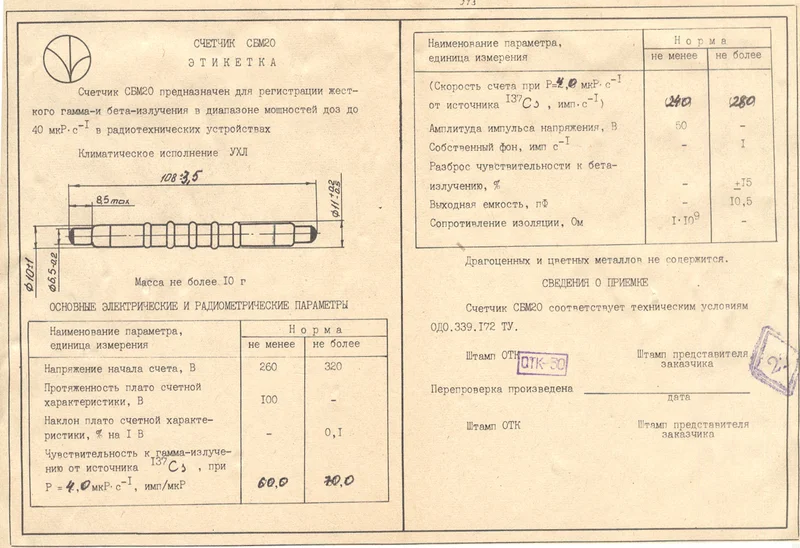 СЧЕТЧИК СБМ20
ЭТИКЕТКА
Счетчик СБМ20 предназначен для регистрации жест-
кого гамма-и бета-излучения в диапазоне мощностей доз до
40 мкР·с⁻¹ в радиотехнических устройствах
Климатическое исполнение УХЛ
108±3,5
8,5 max
ф11+0,2 -0,5
ф10±1
ф6,5-0.2
Масса не более 10 г
ОСНОВНЫЕ ЭЛЕКТРИЧЕСКИЕ И РАДИОМЕТРИЧЕСКИЕ ПАРАМЕТРЫ
Наименование параметра, Норма
единица измерения не менее не более
Напряжение начала счета, В 260 320
Протяженность плато счетной
характеристики, В 100 -
Наклон плато счетной характе-
ристики, % на I В - 0,I
Чувствительность к гамма-излуче-
нию от источника ¹³⁷Cs , при
Р = 4,0 мкР·с⁻¹, имп/мкР 60,0 70,0
273
Наименование параметра, Норма
единица измерения не менее не более
(Скорость счета при Р=4,0 мкР·с⁻¹
от источника ¹³⁷Cs , имп·с⁻¹) 240 280
Амплитуда импульса напряжения, В 50 -
Собственный фон, имп с⁻¹ - I
Разброс чувствительности к бета-
излучению, % - ±15
Выходная емкость, пФ - 10,5
Сопротивление изоляции, Ом I·10⁹ -
Драгоценных и цветных металлов не содержится.
СВЕДЕНИЯ О ПРИЕМКЕ
Счетчик СБМ20 соответствует техническим условиям
ОДО.339.172 ТУ.
Штамп ОТК ОТК-30 Штамп представителя
заказчика
Перепроверка произведена
дата
Штамп ОТК Штамп представителя
заказчика